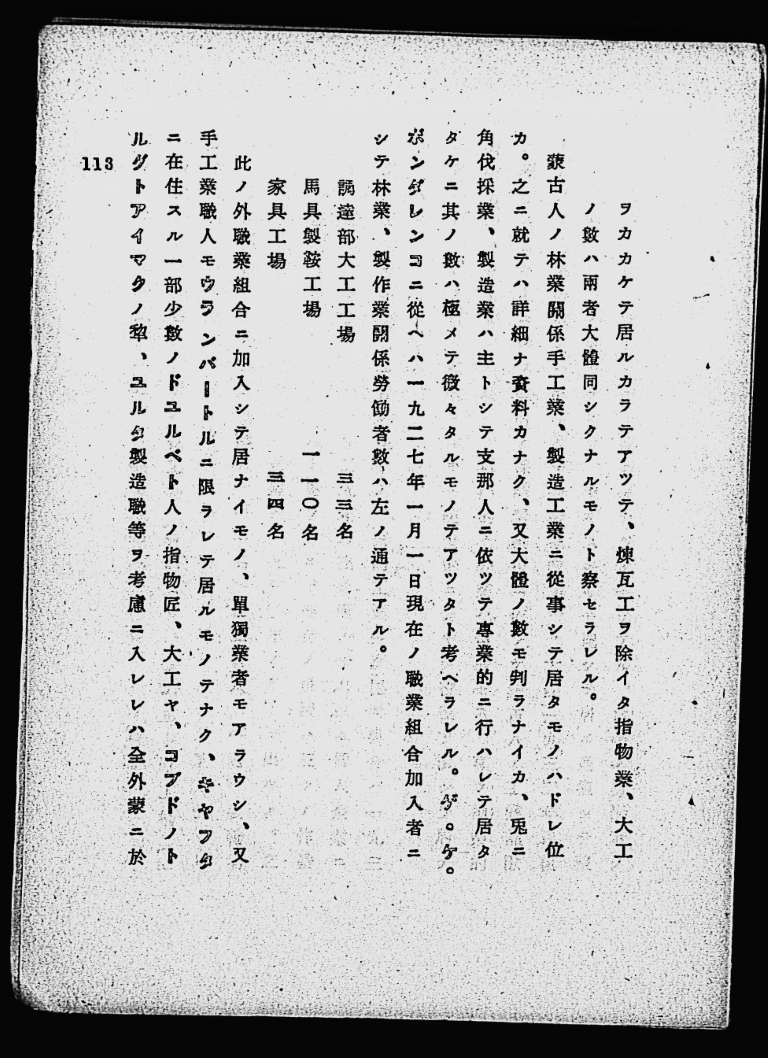 ヲカカケテ居ルカラテアツテ、煉瓦工ヲ除イタ指物業、大工
ノ數ハ兩者大體同シクナルモノト察セラレル。
蒙古人ノ林業關係手工業、製造工業ニ從事シテ居タモノハドレ位
カ。之ニ就テハ詳細ナ資料カナク、又大體ノ數モ判ラナイカ、兎ニ
角伐採業、製造業ハ主トシテ支那人ニ依ツテ專業的ニ行ハレテ居タ
タケニ其ノ數ハ極メテ微々タルモノテアツタト考ヘラレル。ゲ。ケ。
ボンダレンコニ從ヘハ一九二七年一月一日現在ノ職業組合加入者ニ
シテ林業、製作業關係勞働者數ハ左ノ通テアル。
調達部大工工場 三三名
馬具製鞍工場 一一〇名
家具工場 三四名
此ノ外職業組合ニ加入シテ居ナイモノ、單獨業者モアラウシ、又
手工業職人モウランバートルニ限ラレテ居ルモノテナク、キヤフタ
ニ在住スル一部少數ノドユルベト人ノ指物匠、大工ヤ、コブドノト
ルグトアイマクノ犂、ユルタ製造職等ヲ考慮ニ入レレハ全外蒙ニ於
113